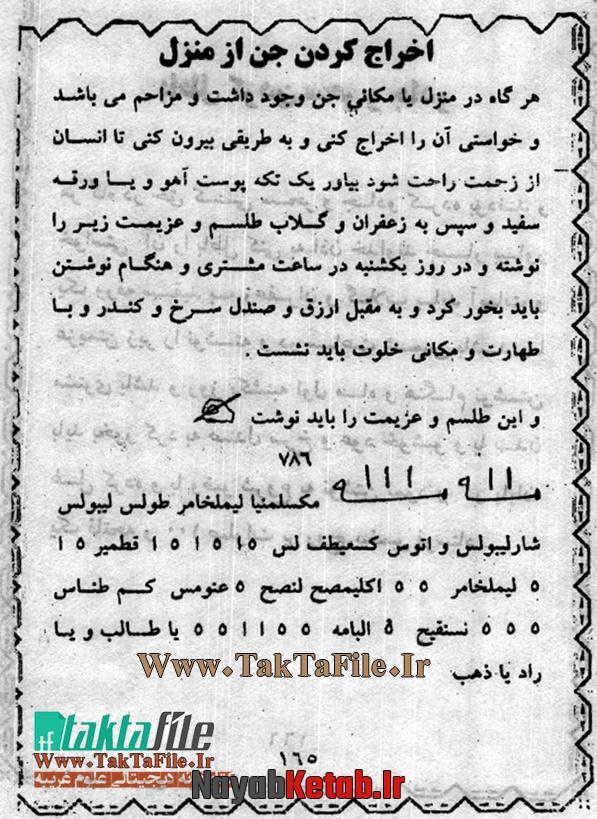 اخراج کردن جن از منزل
هر گاه در منزل یا مکانی جن وجود داشت و مزاحم می باشد
و خواستی آن را اخراج کنی و به طریقی بیرون کنی تا انسان
از زحمت راحت شود بیاور یک تکه پوست آهو و یا ورقه
سفید و سپس به زعفران و گلاب طلسم و عزیمت زیر را
نوشته و در روز یکشنبه در ساعت مشتری و هنگام نوشتن
باید بخور کرد و به مقبل ارزق و صندل سرخ و کندر و با
طهارت و مکانی خلوت باید نشست .
و این طلسم و عزیمت را باید نوشت
۷۸۶
مکسلمنیا لیملخامر طولس لیبولس
شارلیبولس و اتوس کسعیطف لس ۱۵ ۱۵ ۱ ۵ ۱ قطمیر ۱۵
۵ لیملخامر ۵ ۵ اکلیمصح لنصح ۵ عنومس کم طناس
۵ ۵ ۵ نسنقیح ۵ البامه ۵ ۵ ۱ ۱ ۵ ۵ یا طالب و یا
راد یا ذهب
Www.TakTaFile.Ir
taktafile
Www.TakTaFile.Ir
دیجیتالی علوم غریبه
NayabKetab.Ir
۱۶۵